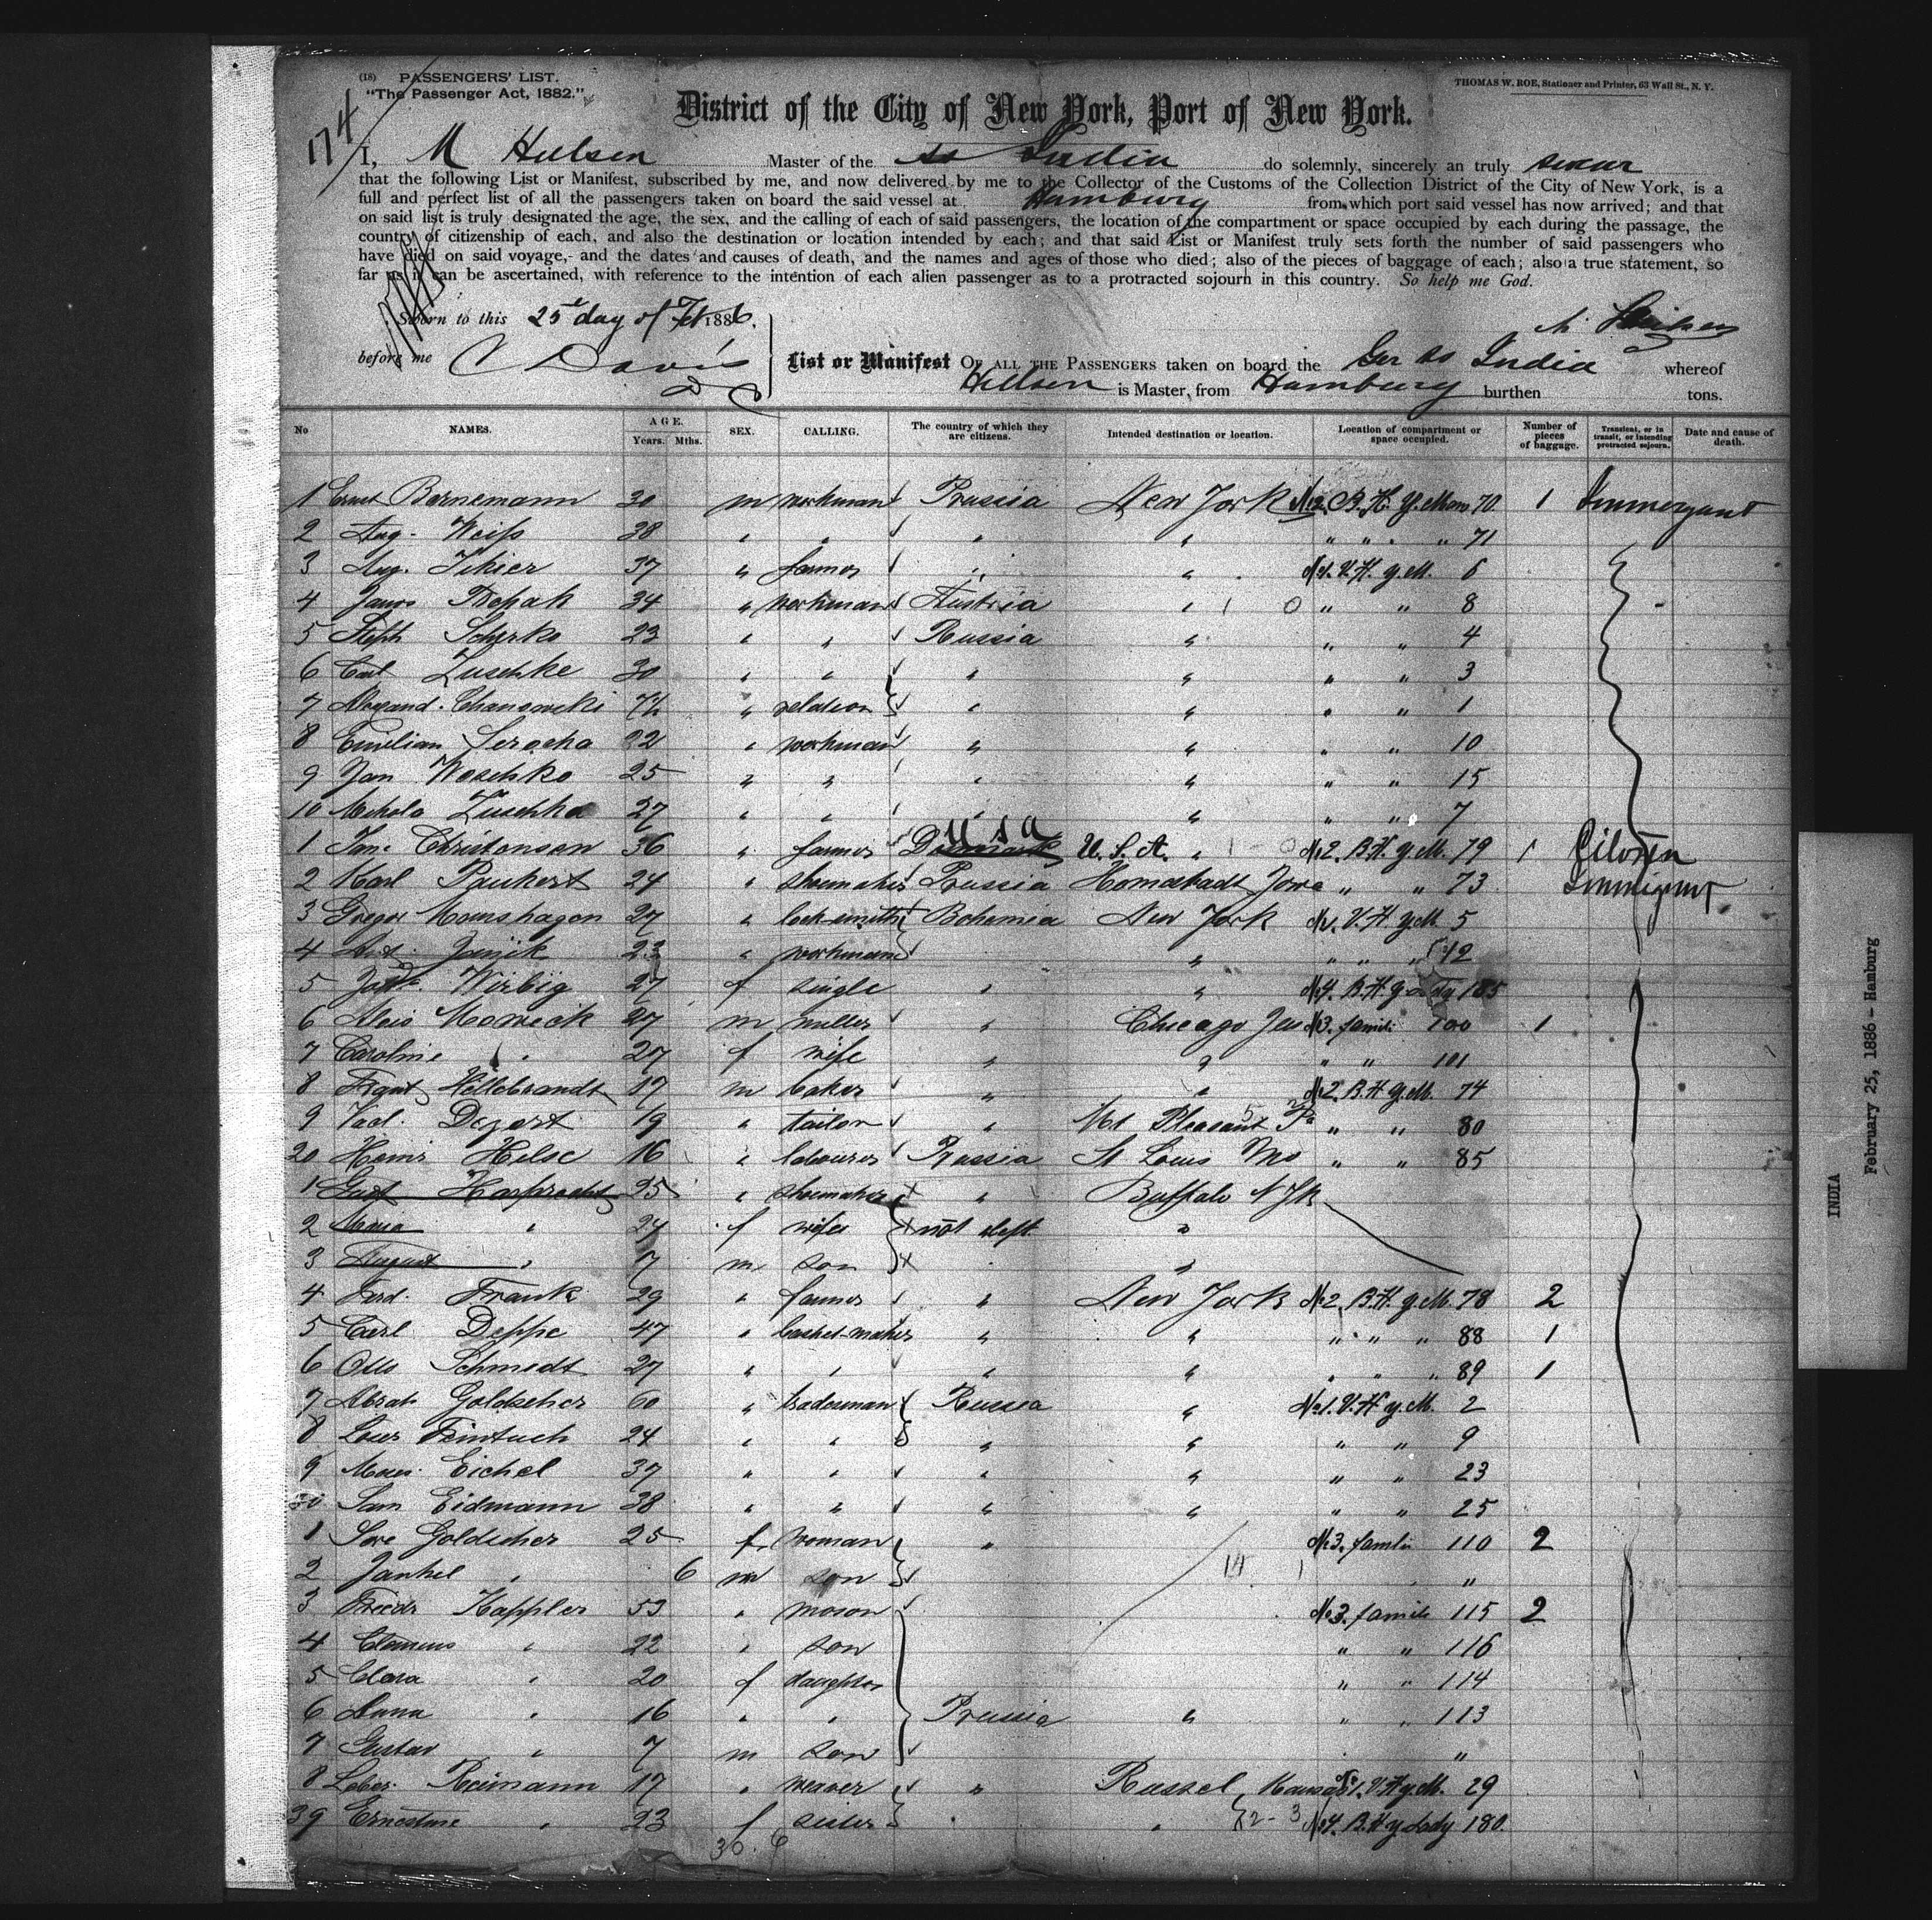 (18) PASSENGERS' LIST.
"The Passenger Act, 1882."
THOMAS W. ROE, Stationer and Printer, 63 Wall St., N. Y.
174
District of the City of New York, Port of New York.
I, M Hulsen Master of the ss India do solemnly, sincerely an truly swear
that the following List or Manifest, subscribed by me, and now delivered by me to the Collector of the Customs of the Collection District of the City of New York, is a
full and perfect list of all the passengers taken on board the said vessel at Hamburg from which port said vessel has now arrived; and that
on said list is truly designated the age, the sex, and the calling of each of said passengers, the location of the compartment or space occupied by each during the passage, the
country of citizenship of each, and also the destination or location intended by each; and that said List or Manifest truly sets forth the number of said passengers who
have died on said voyage, and the dates and causes of death, and the names and ages of those who died; also of the pieces of baggage of each; also a true statement, so
far as it can be ascertained, with reference to the intention of each alien passenger as to a protracted sojourn in this country. So help me God.
Sworn to this 25 day of Feb 1886.
before me C Davis
List or Manifest OF ALL THE PASSENGERS taken on board the Ger ss India whereof
Hulsen is Master, from Hamburg burthen tons.
No NAMES. AGE. Years. Mths. SEX. CALLING. The country of which they are citizens. Intended destination or location. Location of compartment or space occupied. Number of pieces of baggage. Transient, or in transit, or intending protracted sojourn. Date and cause of death.
1 Ernst Bornemann 30 m workman Prussia New York No 2. B.H. 70 1 Immergant
2 Aug. Weiss 38 " " " " " " " 71
3 Aug. 37 " farmer " " No 1. V.H. y.M. 6
4 Janos 34 " workman Austria " " " 8
5 23 " " Russia " " " 4
6 Carl Zuschke 30 " " " " " " 3
7 72 " relation " " " " 1
8 Emilian Serocka 22 " workman " " " " 10
9 Jan Woschko 25 " " " " " " 15
10 Mikola Zuschka 27 " " " " " " 7
1 Christensen 36 " farmer Denmark U S A U.S.A. " No 2. B.H. y.M. 79 1 Citizen
2 Karl Paukert 24 " shoemaker Prussia Homestadt Jowa " " 73 Immigrant
3 Gregor Monshagen 27 " locksmith Bohemia New York No 1. V.H. y.M. 5
4 Janjik 23 " workman " " " 12
5 Wirbig 27 f single " " No 4. B.H. y Lady 185
6 Alois Moweck 27 m miller " Chicago No 3. famili 100 1
7 Caroline " 27 f wife " " " " 101
8 Franz Hillebrandt 17 m baker " " No 2. B.H. y.M. 74
9 Vacl. Dezort 19 " tailor " Mt Pleasant Pa " " 80
20 Heinr Helse 16 " labourer Prussia St Louis Mo " " 85
1 Gust 35 " shoemaker " Buffalo N Jk
2 Maria " 24 f wife not left "
3 August " 7 m son "
4 Ferd. Frank 29 " farmer " New York No 2. B.H. y.M. 78 2
5 Carl Deppe 47 " basket-maker " " " " " 88 1
6 Otto Schmidt 27 " " " " " " 89 1
7 Abrah Goldscher 60 " tradesman Russia " No 1. V.H. y.M. 2
8 Louis Feintuch 24 " " " " " " 9
9 Eichel 37 " " " " " " 23
30 Sam Eidmann 38 " " " " " " 25
1 Sore Goldscher 25 f woman " No 3. famili 110 2
2 Jankel " 6 m son "
3 Kappler 53 " mason No 3. famili 115 2
4 Clemens " 22 " son " " 116
5 Clara " 20 f daughter " " 114
6 Anna " 16 " " Prussia " " " 113
7 Gustav " 7 m son "
8 Reimann 17 " weaver " Russel, Kansas No 1. V.H. y.M. 29
39 Ernestine " 23 f sister " " 2-3 No 4. B.H. y Lady 180.
36. 6
INDIA
February 25, 1886 - Hamburg